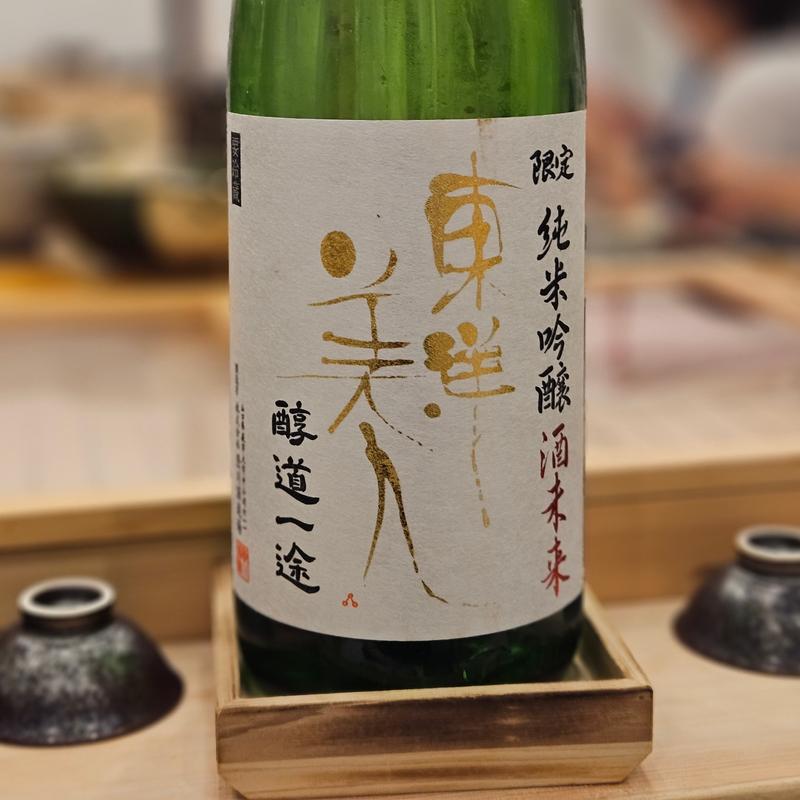 限定 純米吟醸 酒未来
東洋
美人
醇道一途
要冷蔵